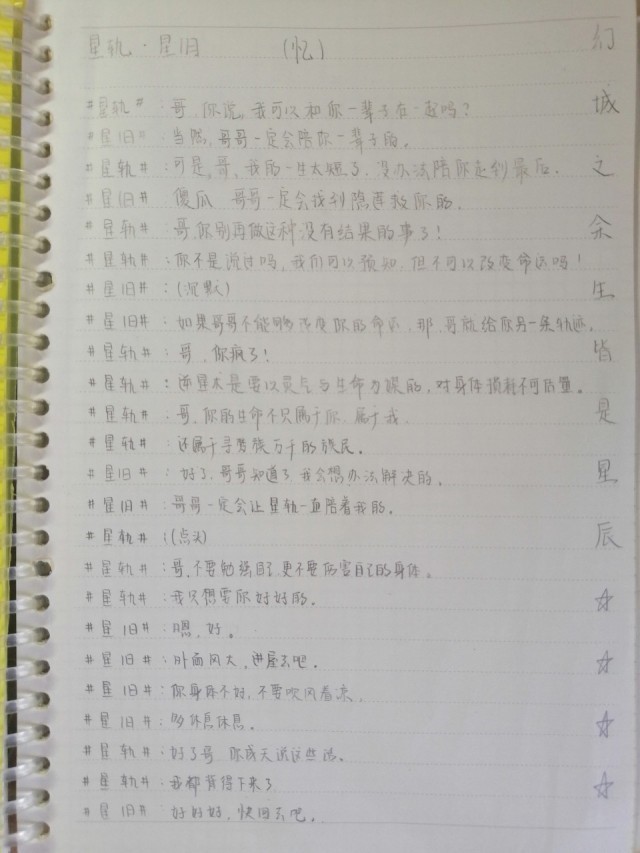 星轨·星旧 (忆)
#星轨#:哥,你说,我可以和你一辈子在一起吗?
#星旧#:当然,哥哥一定会陪你一辈子的。
#星轨#:可是,哥,我的一生太短了,没办法陪你走到最后。
#星旧#:傻瓜 哥哥一定会找到隐莲救你的。
#星轨#:哥,你别再做这种没有结果的事了!
#星轨#:你不是说过吗,我们可以预知,但不可以改变命运吗!
#星旧#:(沉默)
#星旧#:如果哥哥不能够改变你的命运,那,哥就给你另一条轨迹。
#星轨#:哥,你疯了!
#星轨#:逆星术是要以灵气与生命为误的,对身体损耗不可估量。
#星轨#:哥,你的生命不只属于你,属于我,
#星轨#:还属于寻梦族万千的族民。
#星旧#:好了,哥哥知道了 我会想办法解决的。
#星旧#:哥哥一定会让星轨一直陪着我的。
#星轨#:(点头)
#星轨#:哥,不要勉强自己 更不要伤害自己的身体。
#星轨#:我只想要你好好的。
#星旧#:嗯,好。
#星旧#:外面风大,进屋去吧。
#星旧#:你身体不好,不要吹风着凉,
#星旧#:多休息休息。
#星轨#:好了哥 你成天说这些话,
#星轨#:我都背得下来了
#星旧#:好好好,快回去吧。
幻城之余生皆是星辰☆☆☆☆